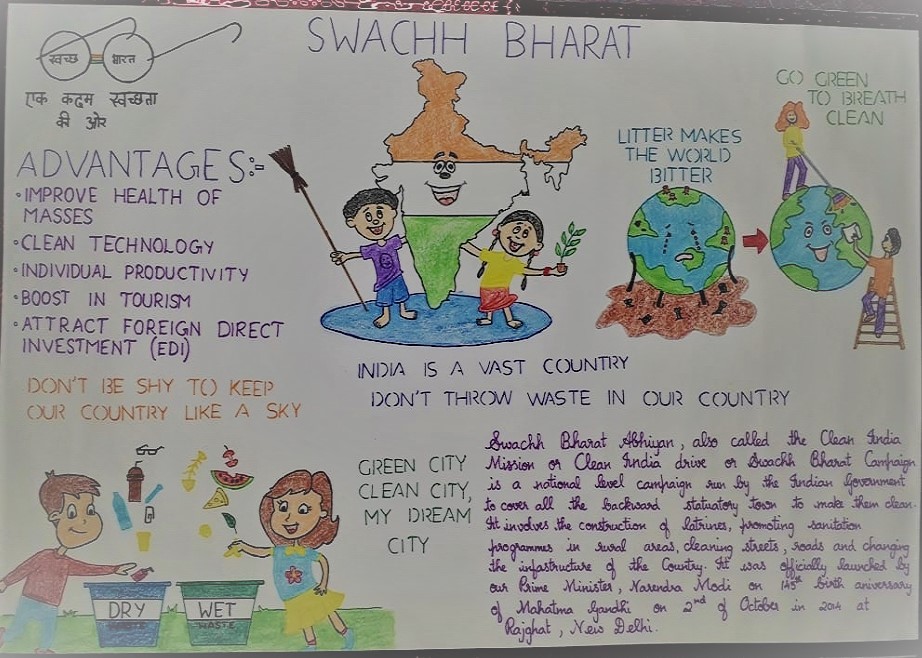 SWACHH BHARAT
स्वच्छ भारत
एक कदम स्वच्छता
की ओर
ADVANTAGES:-
•IMPROVE HEALTH OF
MASSES
•CLEAN TECHNOLOGY
•INDIVIDUAL PRODUCTIVITY
•BOOST IN TOURISM
•ATTRACT FOREIGN DIRECT
INVESTMENT (EDI)
LITTER MAKES
THE WORLD
BITTER
GO GREEN
TO BREATH
CLEAN
INDIA IS A VAST COUNTRY
DON'T THROW WASTE IN OUR COUNTRY
DON'T BE SHY TO KEEP
OUR COUNTRY LIKE A SKY
DRY
WASTE
WET
WASTE
GREEN CITY
CLEAN CITY,
MY DREAM
CITY
Swachh Bharat Abhiyan, also called the Clean India
Mission or Clean India drive or Swachh Bharat Campaign
is a national level campaign run by the Indian Government
to cover all the backward statuatory town to make them clean.
It involves the construction of latrines, promoting sanitation
programmes in rural areas, cleaning streets, roads and changing
the infastructure of the Country. It was officially launched by
our Prime Minister, Narendra Modi on 145th birth aniversary
of Mahatma Gandhi on 2nd of October in 2014 at
Rajghat, New Delhi.